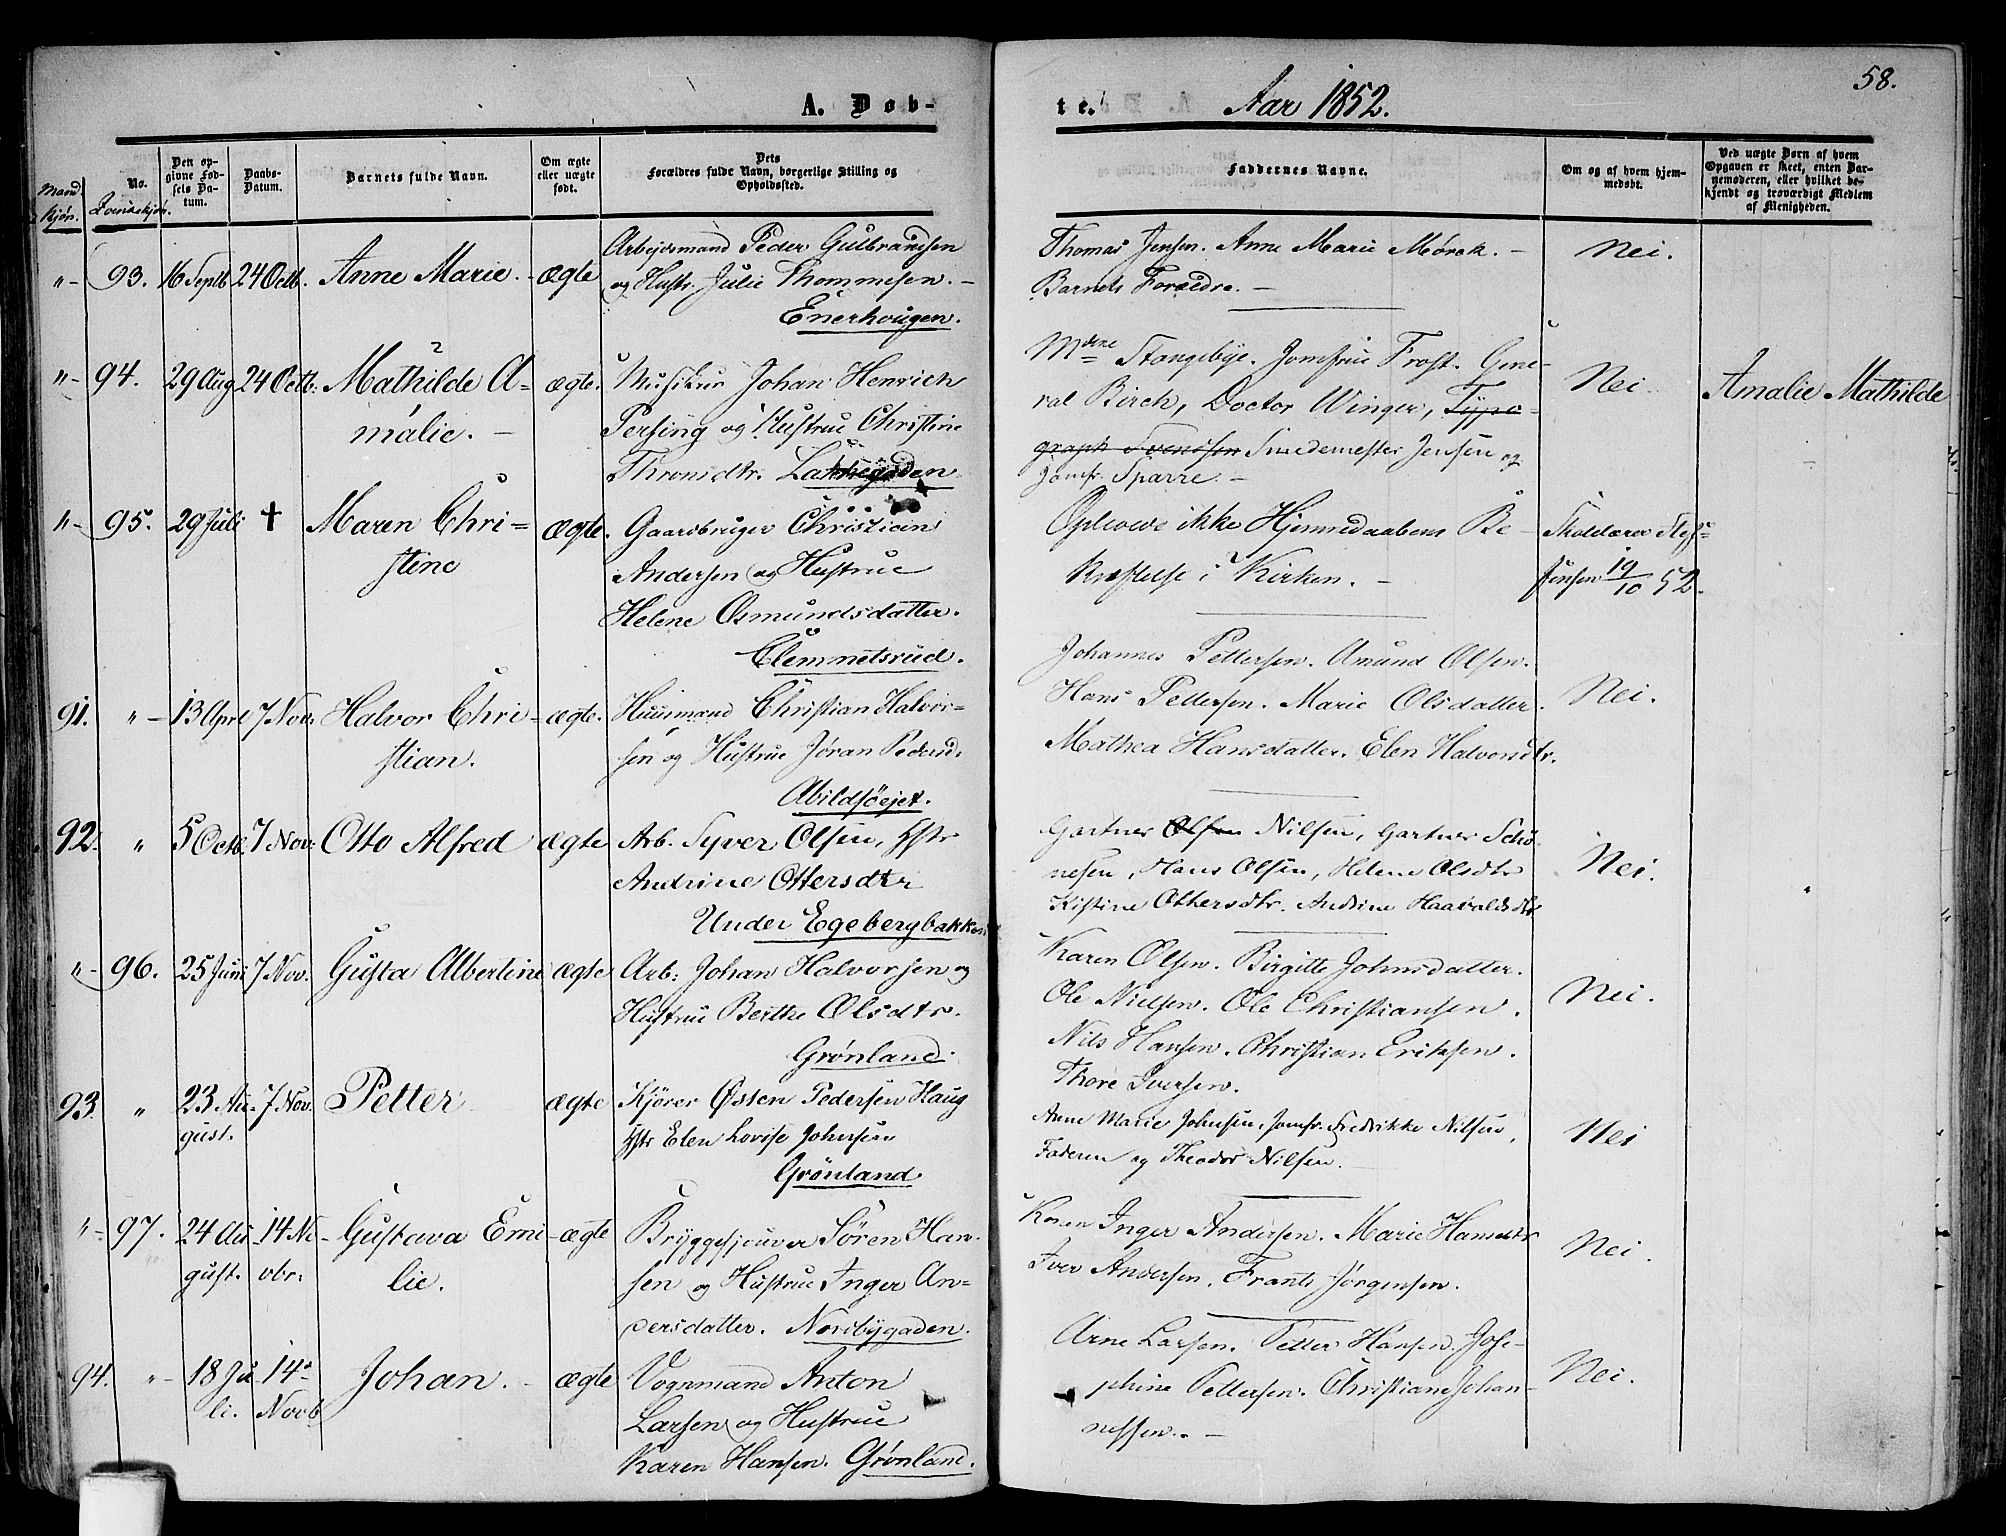 58.
A. Døb-
te.
Aar 1852.
Mand
kjøn.
No.
Qvindekjøn.
Den op-
givne Fød-
sels Da-
tum.
Daabs-
Datum.
Barnets fulde Navn.
Om ægte
eller uægte
født.
Dets
Forældres fulde Navn, borgerlige Stilling og
Opholdssted.
Faddernes Navne.
Om og af hvem hjem-
medøbt.
Ved uægte Børn af hvem
Opgaven er skeet, enten Bar-
nemoderen, eller hvilket be-
kjendt og troværdigt Medlem
af Menigheden.
"- 93. 16 Septb 24 Octb. Anne Marie. - ægte
Arbeidsmand Peder Gulbrandsen
og Hustr. Julie Thommesen. -
Enerhougen.
Thomas Jensen. Anne Marie Mørck. -
Barnets Forældre. -
Nei.
"- 94. 29 Aug 24 Octb. Mathilde A-
malie. -
ægte.
Musikus Johan Henrich
Persing og Hustrue Christine
Thronsdtr. Lakkegaden
Mdme Stangebye. Jomfrue Frost. Gene-
ral Birch, Doctor Winger, Typo-
graph Svendsen Smedemester Jensen og
Jomfr. Sparre. -
Nei.
Amalie Mathilde
"- 95. 29 Juli + Maren Chri-
stine
ægte.
Gaardbruger Christian
Andersen og Hustrue
Helene Osmundsdatter.
Clemmetsrud.
Oplevede ikke Hjemmedaabens Be-
kræftelse i Kirken. -
Skolelærer
Jensen 19/10 52.
91. "- 13 April 7 Nov. Halvor Chri-
stian.
ægte.
Huusmand Christian Halvor-
sen og Hustrue Jøran Pedersd.
Abildsøejet.
Johannes Pettersen. Amund Olsen.
Hans Pettersen. Marie Olsdatter.
Mathea Hansdatter. Elen Halvorsdtr.
Nei.
92. " 5 Octb. 7 Nov. Otto Alfred ægte
Arb. Syver Olsen, Hstr
Andrine Ottersdtr
Under Egebergbakken
Gartner Olsen Nilsen, Gartner Schø-
nesen, Hans Olsen, Helene Olsdtr
Kistine Ottersdtr. Andrine Haavaldsdtr
Nei.
"- 96. 25 Juni 7 Nov. Gusta Albertine ægte
Arb: Johan Halvorsen og
Hustrue Berthe Olsdtr.
Grønland.
Karen Olsen. Birgitte Johnsdatter.
Ole Nielsen. Ole Christiansen.
Nils Hansen. Christian Eriksen.
Thore Iversen.
Nei.
93. " 23 Au-
gust.
7 Nov. Petter ægte
Kjører Østen Pedersen Haug
Hstr Elen Lovise Johnsen
Grönland
Anne Marie Johnsen, Jomfr. Fredrikke Nilsen,
Faderen og Theodor Nilsen.
Nei
"- 97. 24 Au-
gust.
14 No-
vbr.
Gustava Emi-
lie.
ægte
Bryggesjouver Søren Han-
sen og Hustrue Inger An-
dersdatter. Nordbygaden.
Karen Inger Andersen. Marie Hansdtr
Iver Andersen. Frants Jørgensen.
Nei.
94. "- 18 Ju-
li.
14de
Novb
Johan. - ægte
Vognmand Anton
Larsen og Hustrue
Karen Hansen. Grønland.
Arne Larsen. Petter Hansen. Jose-
phine Pettersen. Christiane Johan-
nessen. -
Nei.